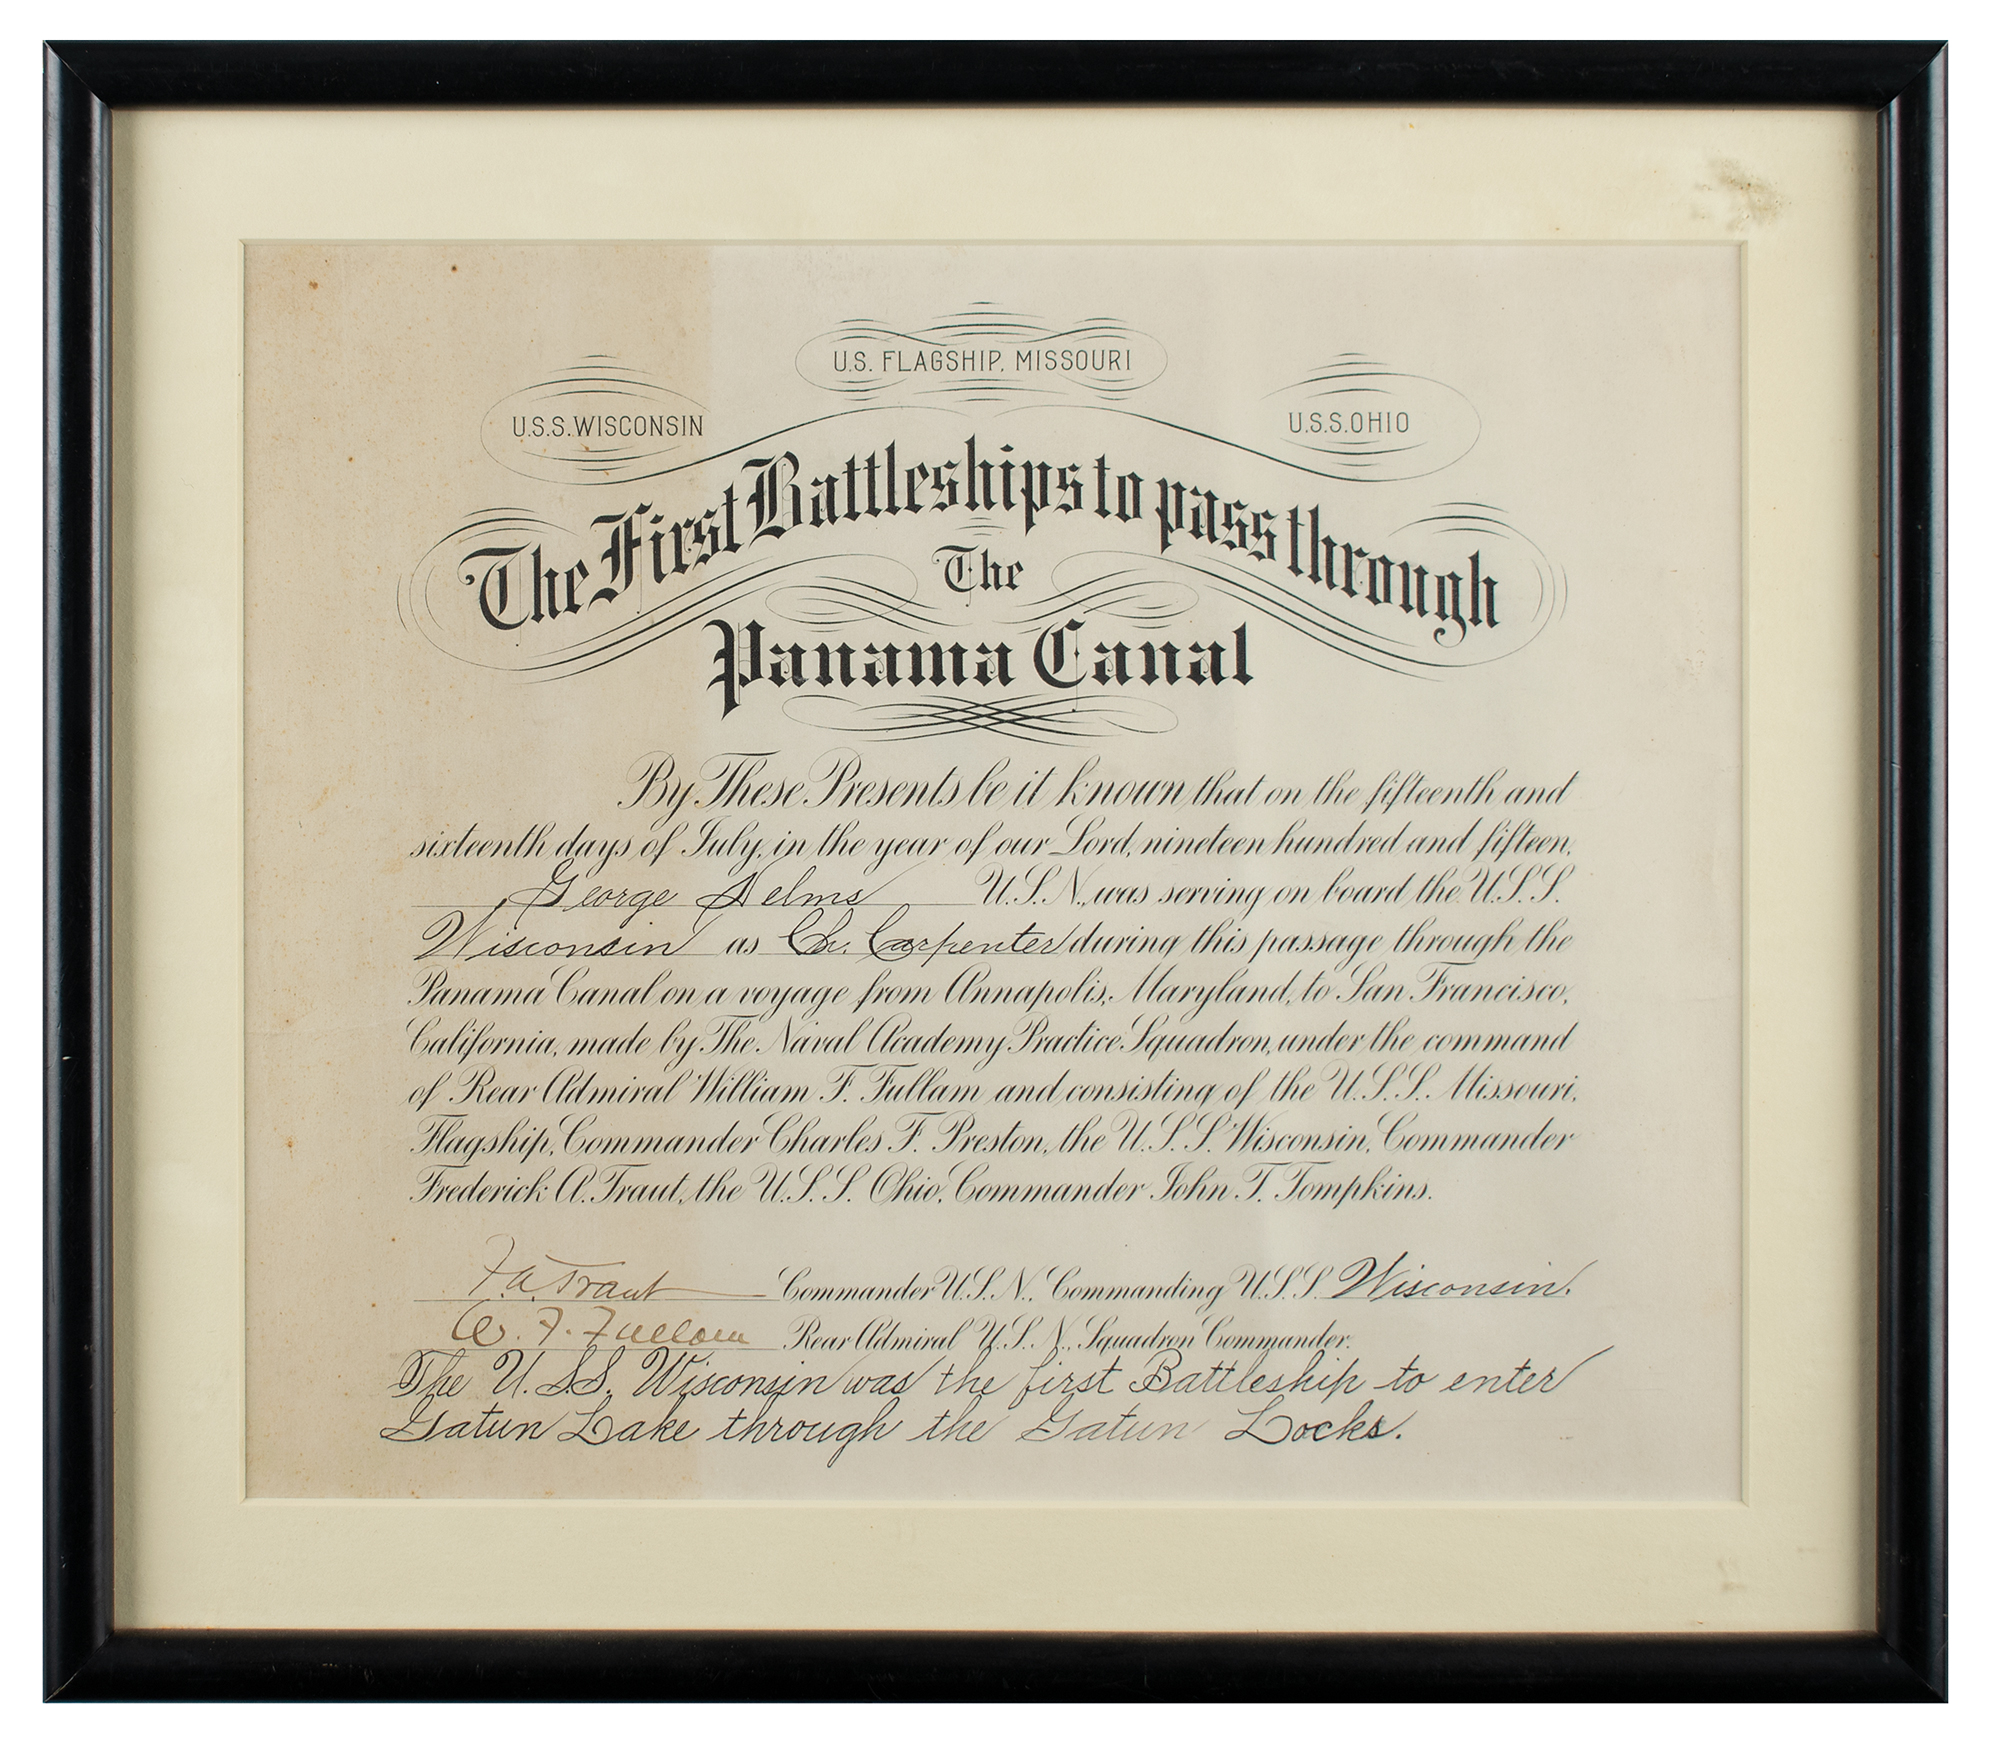 U.S. FLAGSHIP, MISSOURI
U.S.S.WISCONSIN
U.S.S.OHIO
The First Battleships to pass through
The
Panama Canal
By These Presents be it known that on the fifteenth and
sixteenth days of July, in the year of our Lord, nineteen hundred and fifteen,
George Nelms U.S.N., was serving on board the U.S.S.
Wisconsin as Ch. Carpenter during this passage through the
Panama Canal on a voyage from Annapolis, Maryland, to San Francisco,
California, made by The Naval Academy Practice Squadron, under the command
of Rear Admiral William F. Fullam and consisting of the U.S.S. Missouri,
Flagship, Commander Charles F. Preston, the U.S.S. Wisconsin, Commander
Frederick A. Traut, the U.S.S. Ohio, Commander John T. Tompkins.
F. A. Traut Commander U.S.N., Commanding U.S.S. Wisconsin.
W. F. Fullam Rear Admiral U.S.N., Squadron Commander.
The U.S.S. Wisconsin was the first Battleship to enter
Gatun Lake through the Gatun Locks.